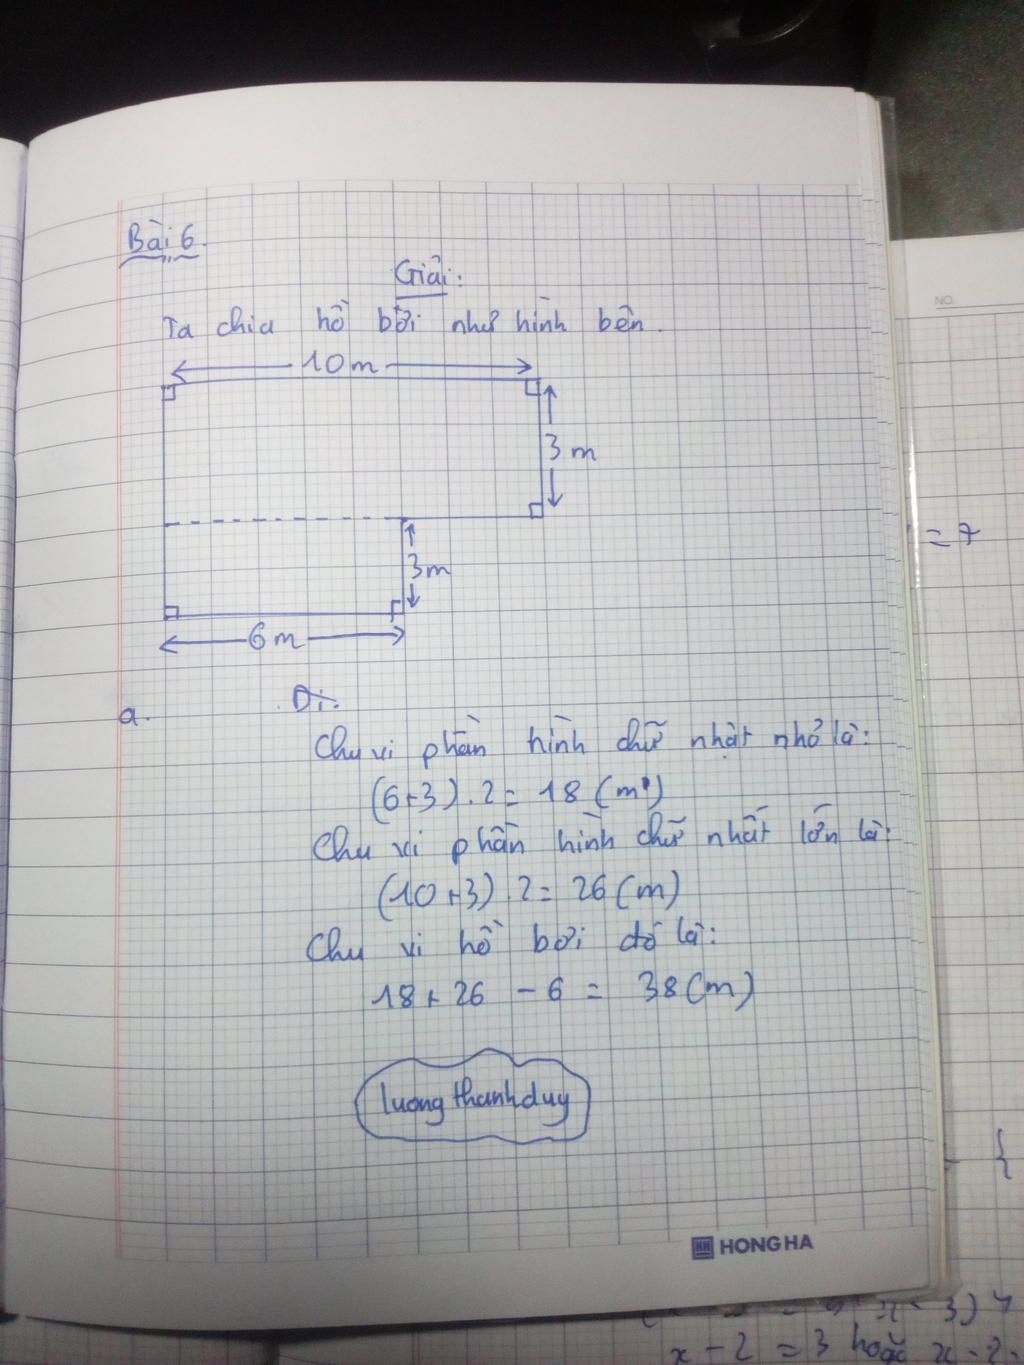 Bài 6.
Giải:
Ta chia hồ bơi như hình bên.
10 m
3 m
3m
6 m
a.
Chu vi phần hình chữ nhật nhỏ là:
(6+3).2 = 18 (m)
Chu vi phần hình chữ nhất lớn là:
(10+3).2 = 26 (m)
Chu vi hồ bơi đó là:
18 + 26 - 6 = 38 (m)
luong thanh duy
HONG HA
NO.
= 7
x - 2 = 3 hoặc x - 2